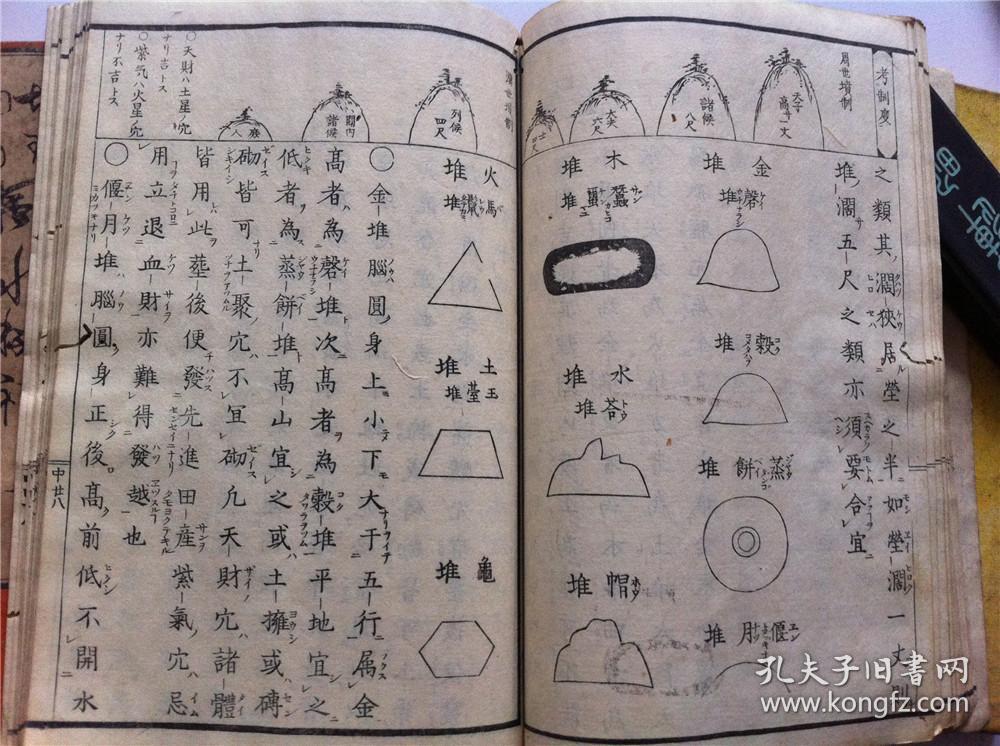 考制度
周世墳制
天子高サ一丈
諸侯八尺
大夫六尺
之類其濶狹居塋之半如塋濶一丈則
堆濶五尺之類亦須要合宜
金堆
磬堆
穀堆
蒸餅堆
偃月堆
木堆
蠶繭堆
水堆
荅堆
帽堆
漢世墳制
列侯四尺
關内諸侯
庶人
○天財ハ土星ノ穴
ナリ吉トス
○紫気ハ火星ノ穴
ナリ不吉トス
火堆
馬鬣堆
土堆
玉臺堆
龜堆
○金堆腦圓身上小下大于五行属金
高者為磬堆次高者為穀堆平地宜之
低者為蒸餅堆高山宜之或土擁或磚
砌皆可土聚穴不冝砌凢天財穴諸體
皆用此塟後便發先進田産紫氣穴忌
用立退血財亦難得發越也
○偃月堆腦圓身正後高前低不開水
中廿八
孔夫子旧書网
www.kongfz.com